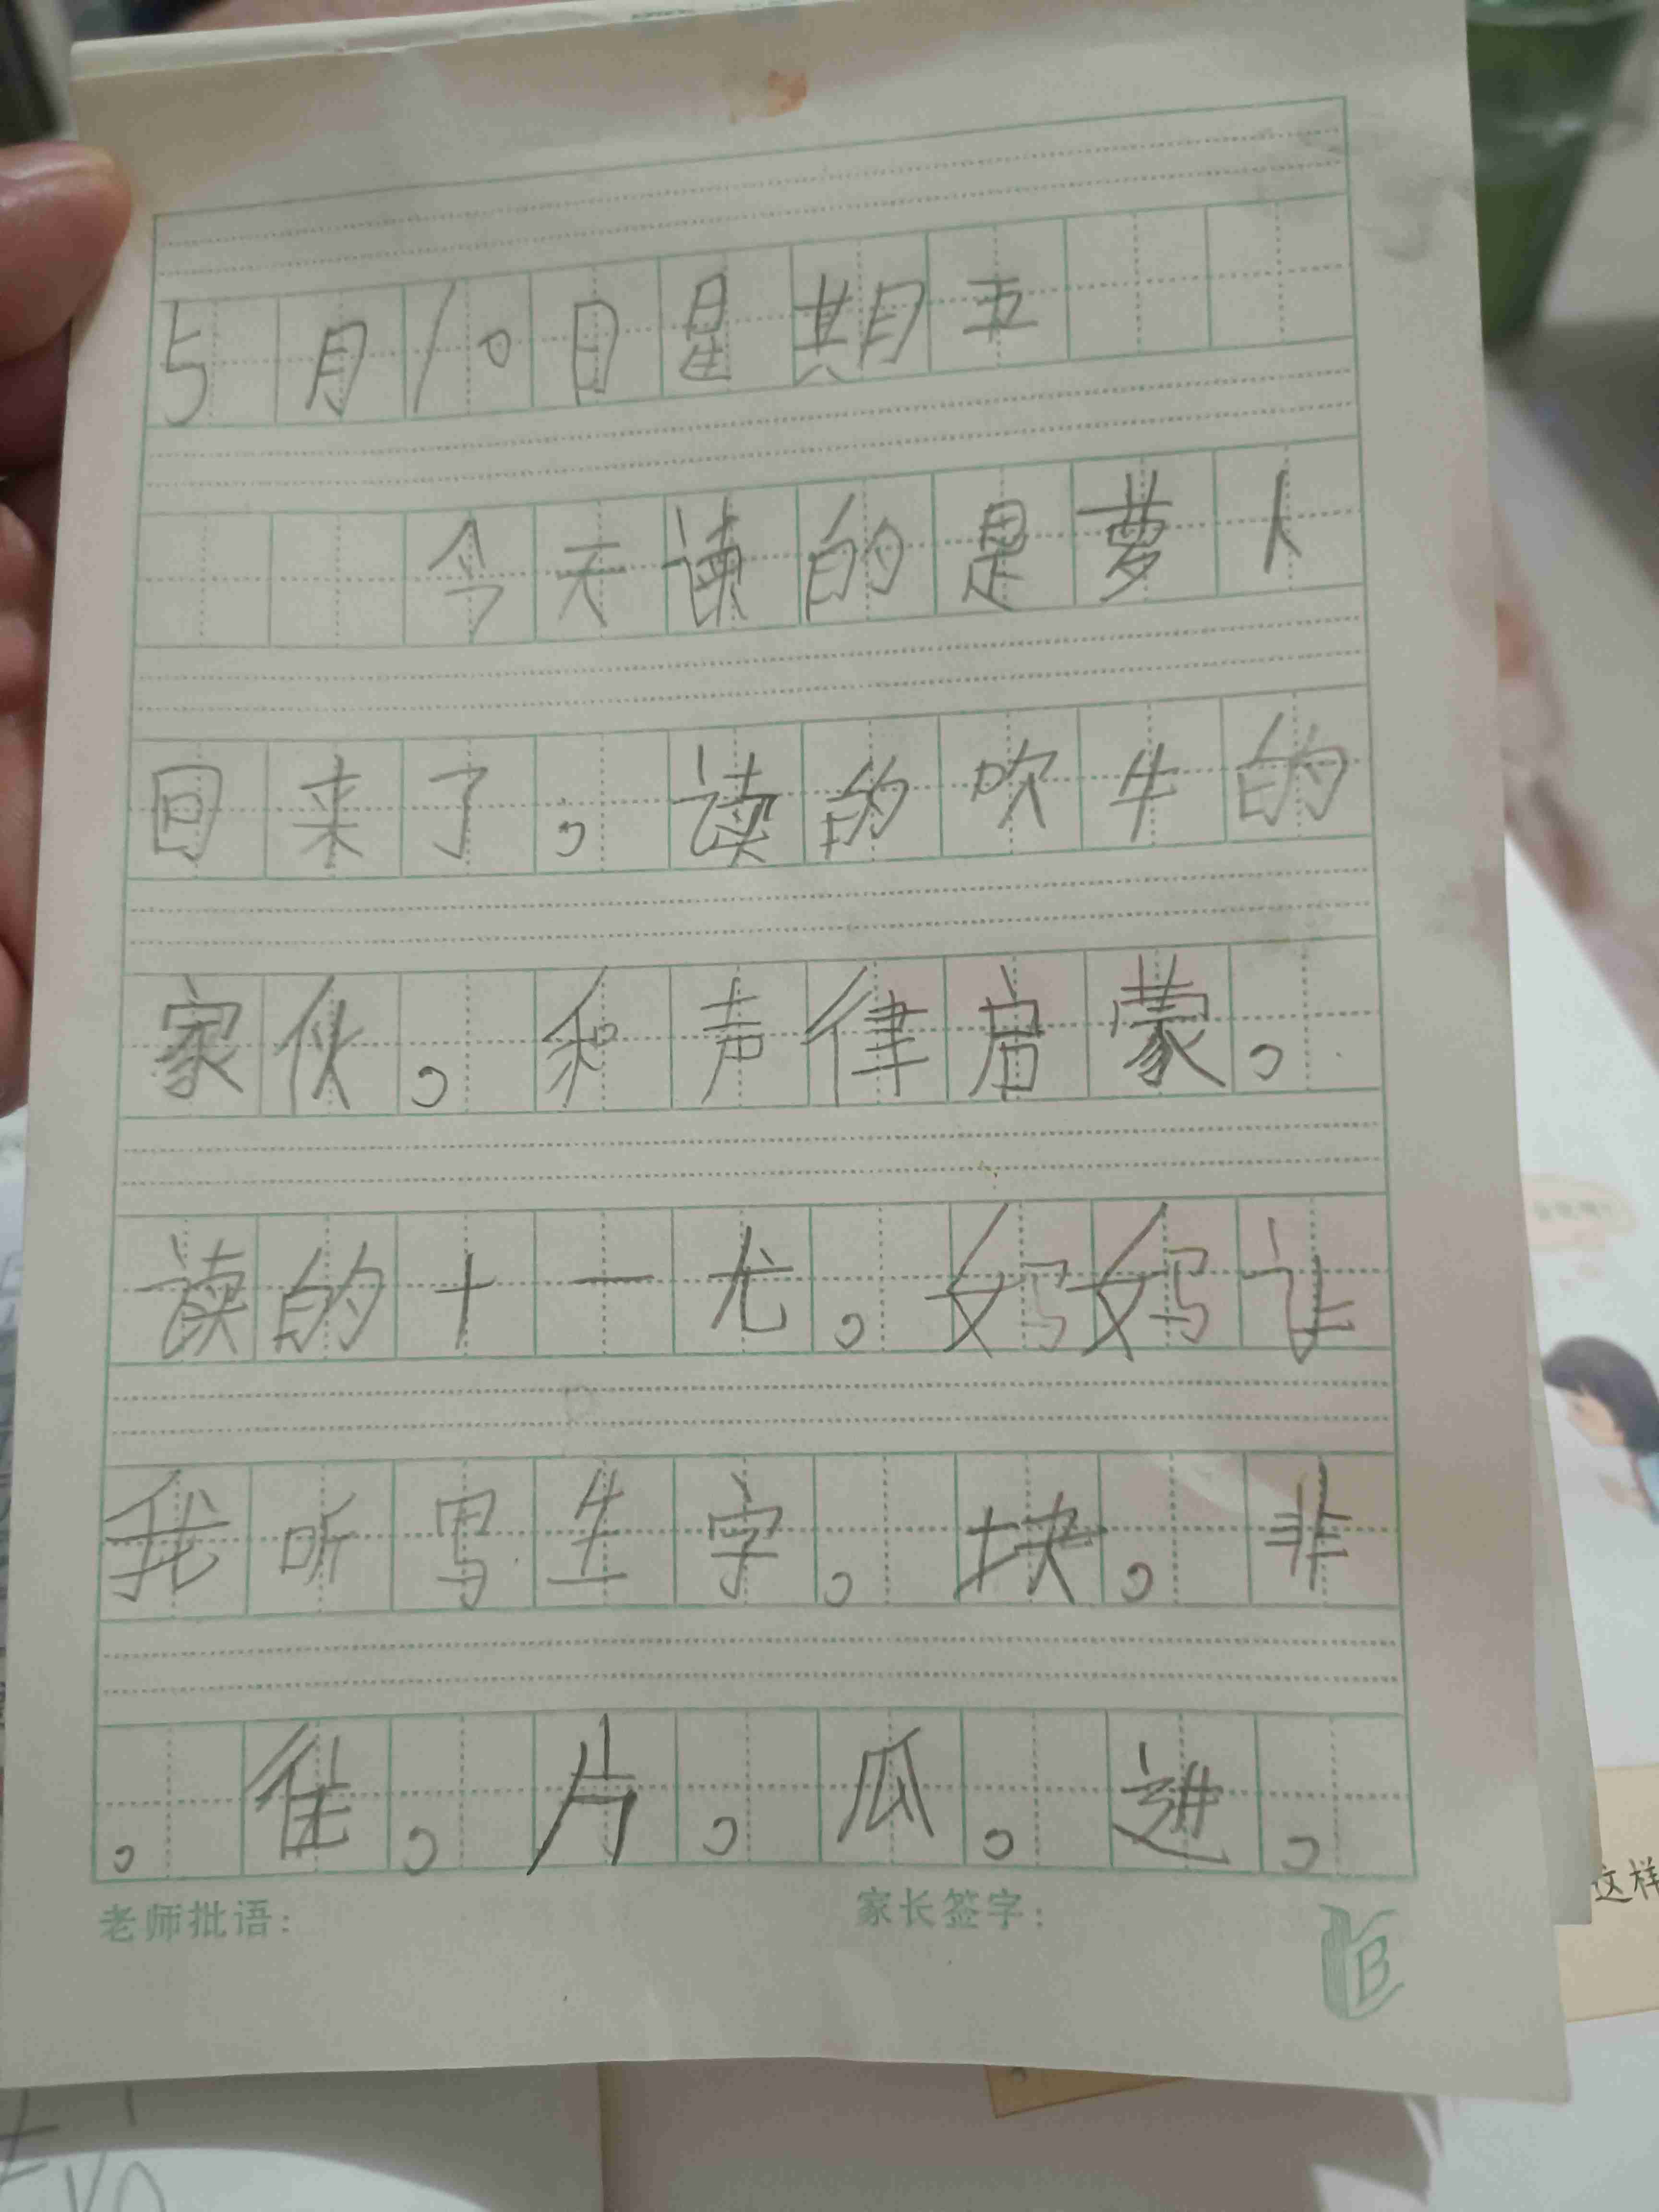 5月10日星期五
今天读的是萝卜
回来了。读的吹牛的
家伙。和声律启蒙。
读的十一尤。妈妈让
我听写生字。块。非
。往。片。瓜。进。
老师批语：
家长签字：
B
这样